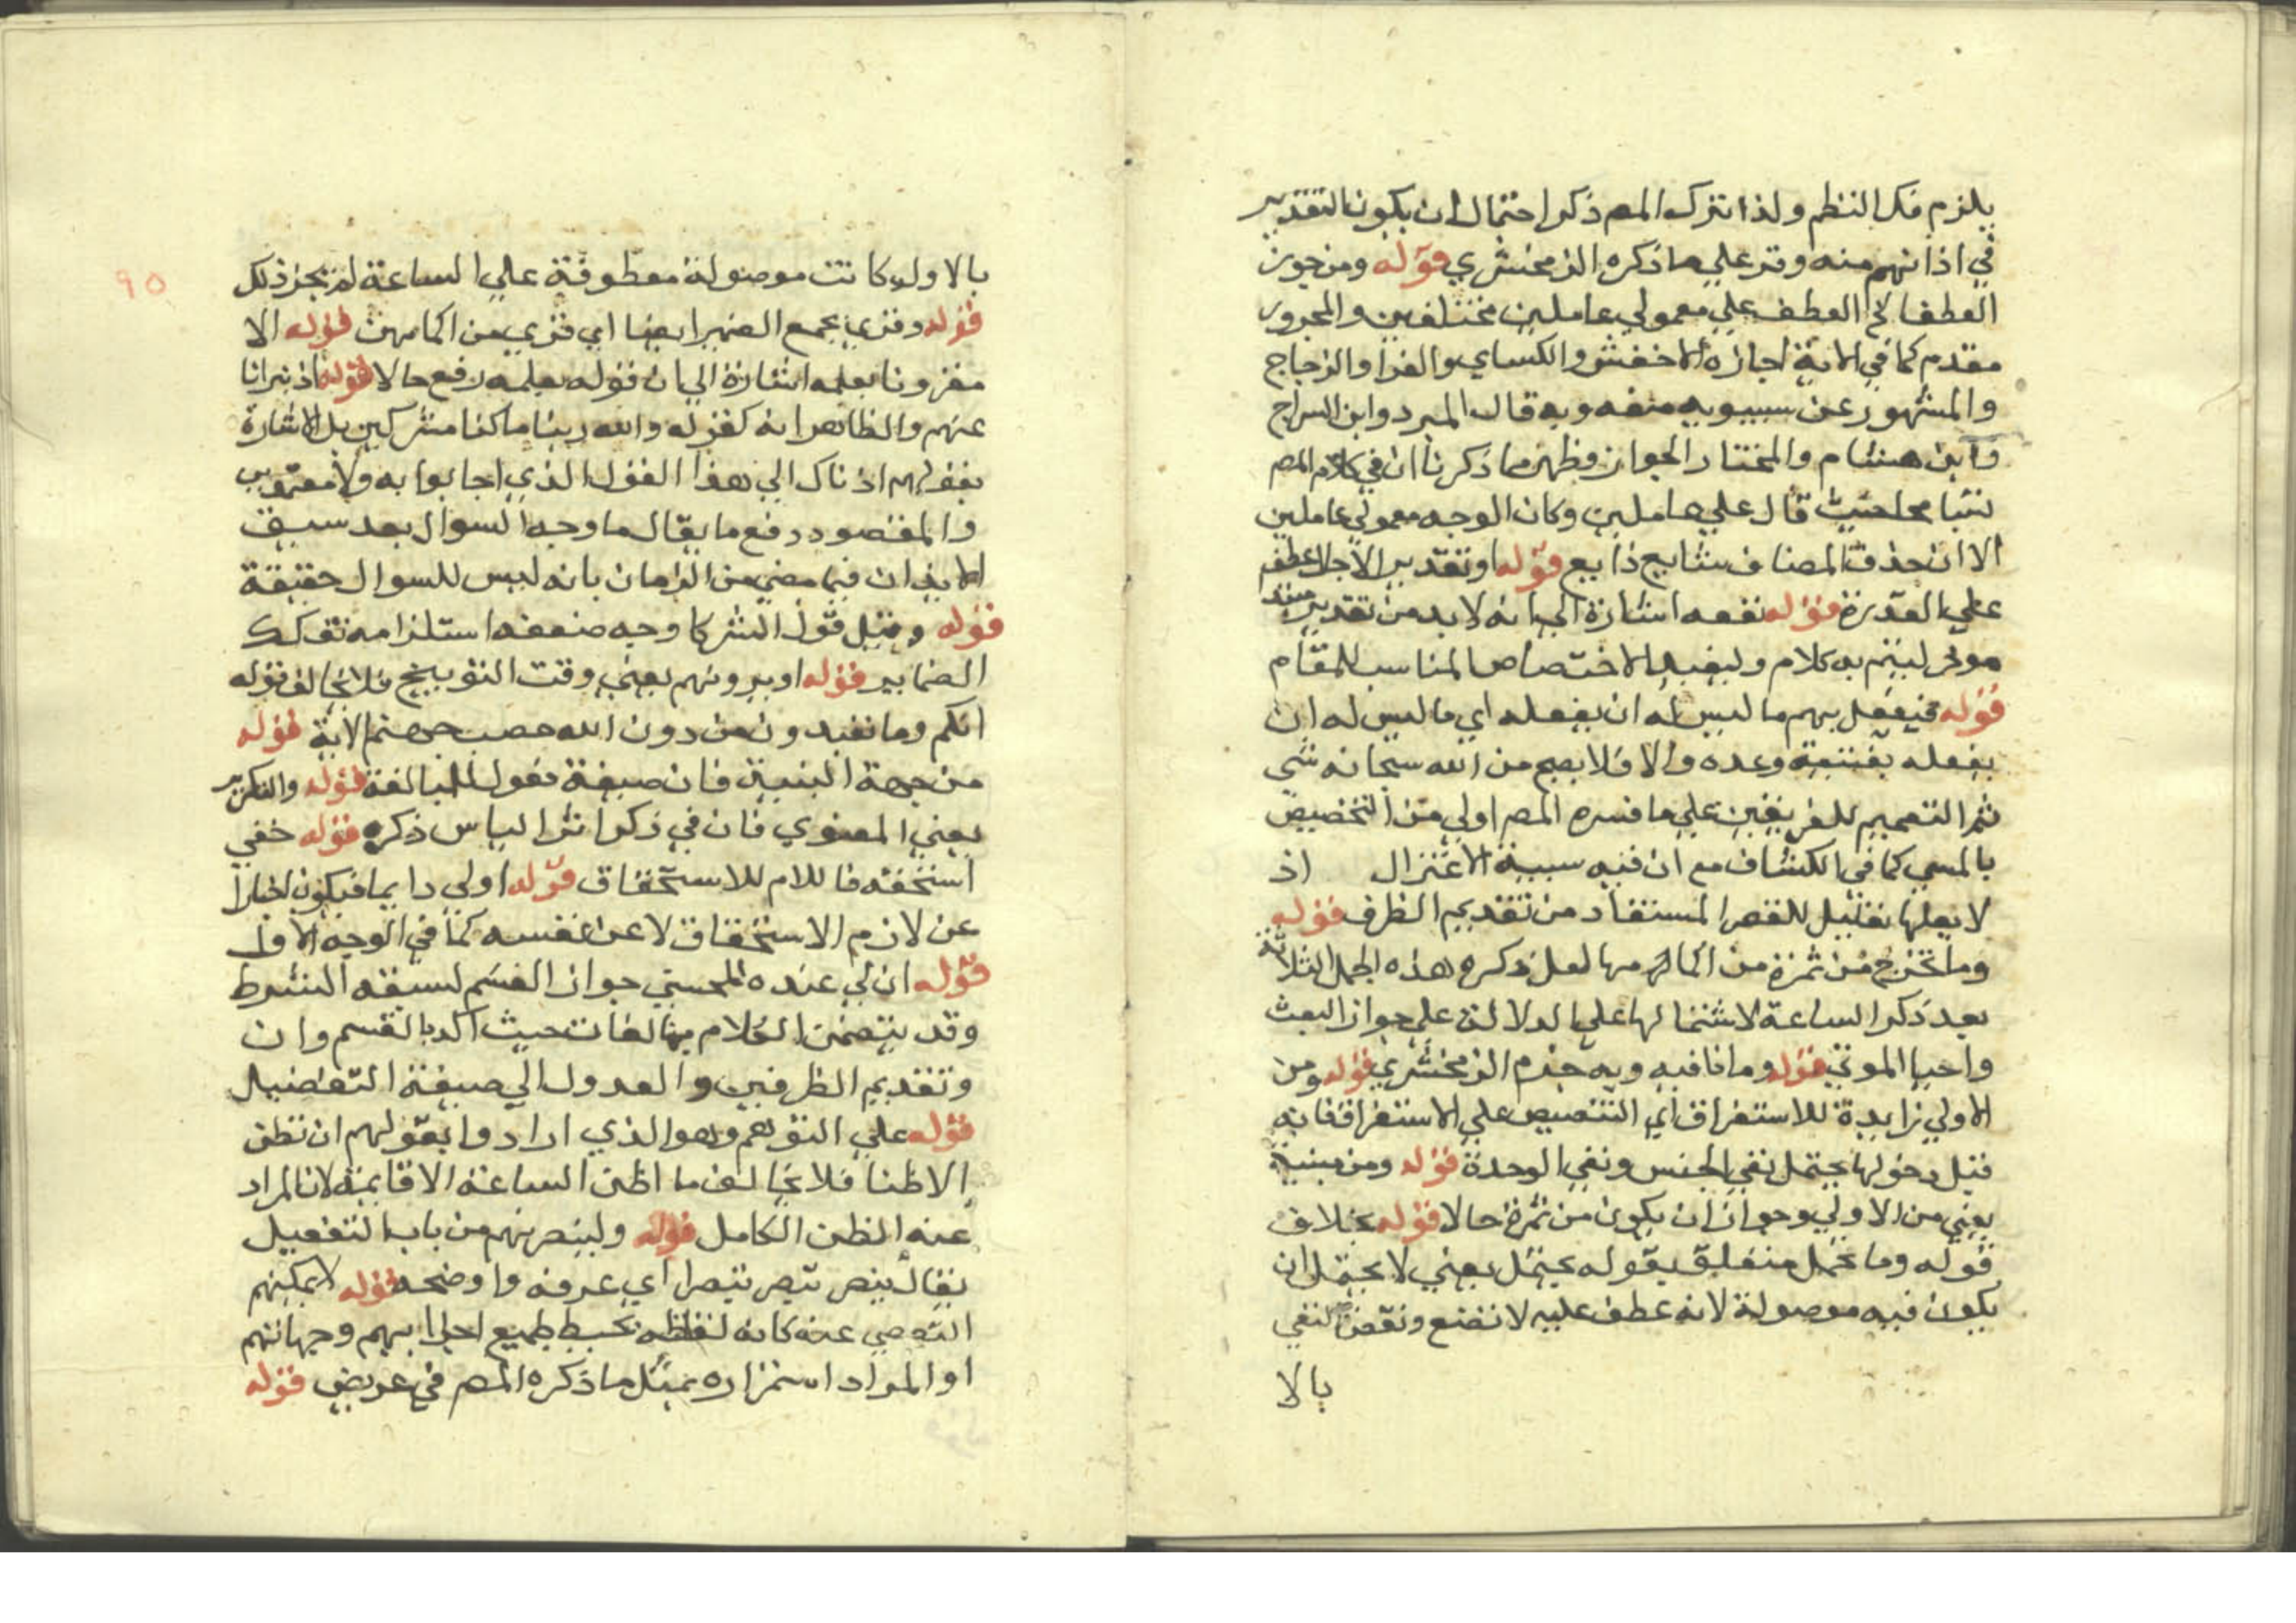 يلزم فك النظم ولذا ترك المص ذكر احتمال ان يكون التقدير
في اذانهم منه وقر علي ما ذكره الزمخشري قوله ومن جوز
العطف الخ العطف علي معمولي عاملين مختلفين والمجرور
مقدم كما في الاية اجازه الاخفش والكساي والفرا والزجاج
والمشهور عن سيبويه منعه وبه قال المبرد وابن السراج
وابن هشام والمختار الجواز وظهر مما ذكرنا ان في كلام المص
تسامحا حيث قال علي عاملين وكان الوجه معمولي عاملين
الا ان حذف المضاف شايع ذايع قوله او تقدير الاجل عطف
علي العذرة قوله نفعه اشارة الي انه لا بد من تقدير مبتد
موخر ليتم به كلام وليفيد الاختصاص المناسب للمقام
قوله فيفعل بهم ما ليس له ان يفعله اي ما ليس له ان
يفعله بمقتضي وعده والا فلا يصح من الله سبحانه شي
ثم التعميم للفريقين علي ما فسره المص اولي من التخصيص
بالمسي كما في الكشاف مع ان فيه سببية الاعتزال اذ
لا يعلمها تعليل للقصر المستفاد من تقديم الظرف قوله
وما تخرج من ثمرة من اكمامها لعل ذكر هذه الجمل الثلاثة
بعد ذكر الساعة لاشتمالها علي الدلالة علي جواز البعث
واحيا الموتي قوله وما نافيه وبه جزم الزمخشري قوله ومن
الاولي زايدة للاستغراق اي التنصيص علي الاستغراق فانه
قبل دخولها يحتمل نفي الجنس ونفي الوحدة قوله ومن مبنية
يعني من الاولي وجواز ان يكون من ثمرة حالا قوله بخلاف
قوله وما تحمل متعلق بقوله يحتمل يعني لا يحتمل ان
يكون فيه موصولة لانه عطف عليه لا تضع ونقض النفي
بالا
٩٥
بالا ولو كانت موصولة معطوفة علي الساعة لم يجز ذلك
قوله وقري بجمع الضمير ايضا اي قري من اكمامهن قوله الا
مقرونا بعلمه اشارة الي ان قوله بعلمه رفع حالا قوله اذ تبرانا
عنهم والظاهر انه كقوله والله ربنا ما كنا مشركين بل الاشارة
بقولهم اذناك الي هذا القول الذي اجابوا به ولا
والمقصود دفع ما يقال ما وجه السوال بعد سبق
الايذان فيما مضي من الزمان بانه ليس للسوال حقيقة
قوله وقيل قول الشركا وجه ضعفه استلزامه تفكك
الضماير قوله اويرونهم يعني وقت التوبيخ فلا يخالف قوله
انكم وما تعبدون من دون الله حصب جهنم الاية قوله
من جهة البنية فان صيغة فعول للمبالغة قوله والتكرير
يعني المعنوي فان في ذكر اثر الياس ذكره قوله حقي
استحقه فاللام للاستحقاق قوله اولي دايما فيكون اخبارا
عن لازم الاستحقاق لا عن نفسه كما في الوجه الاول
قوله ان لي عنده للحسني جواز القسم لسبقه الشرط
وقد يتضمن الكلام مبالغات حيث اكد بالقسم وان
وتقديم الظرفين والعدول الي صيغة التفضيل
قوله علي التوهم وهو الذي ارادوا بقولهم ان نظن
الا ظنا فلا يخالف ما اظن الساعة الا قايمة لان المراد
عنه الظن الكامل قوله ولينصرنهم من باب التفعيل
يقال بنصر تبصر تبصرا اي عرفه واوضحه قوله لا يمكنهم
التفصي عنه كانه لغلظه يحيط بجميع اجرابهم وجهاتهم
او المراد استمراره بمثل ما ذكره المص في عريض قوله